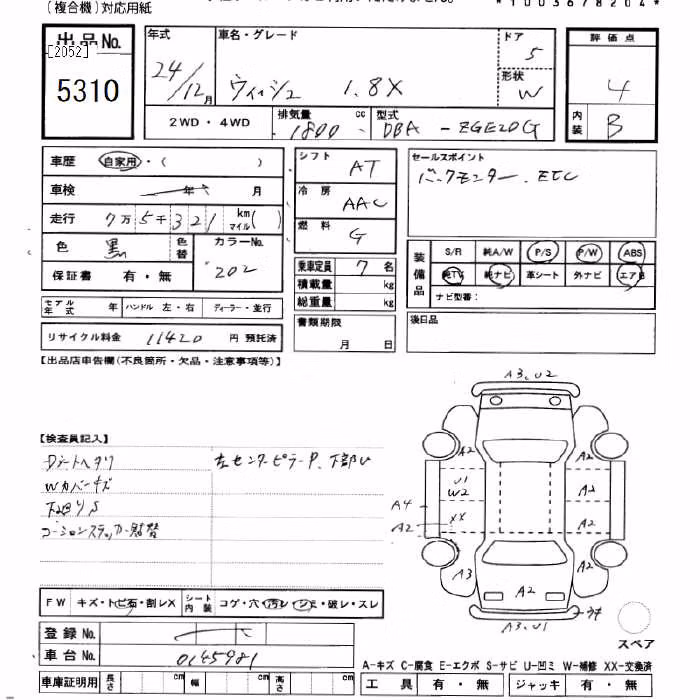 (複合機)対応用紙
*1003678204*
出品No.
[2052]
5310
年式
24/12月
車名・グレード
ウィッシュ 1.8X
ドア
5
形状
W
2WD・4WD
排気量 1800 cc
型式 DBA-ZGE20G
評価点
4
内装 B
車歴 自家用・( )
車検 年 月
走行 7万5千321 km マイル( )
色 黒 色替
カラーNo. 202
保証書 有・無
シフト AT
冷房 AAC
燃料 G
乗車定員 7名
積載量 kg
総重量 kg
セールスポイント
バックモニター、ETC
装備品
S/R 純A/W P/S P/W ABS
純TV 純ナビ 革シート 外ナビ エアB
ナビ型番:
モデル年式 年 ハンドル 左・右 ディーラー・並行
リサイクル料金 11420 円 預託済
書類期限
月 日
後日品
【出品店申告欄(不良箇所・欠品・注意事項等)】
【検査員記入】
Dシートヘタリ
Wカバーキズ
下回りS
コーションステッカー貼替
左センターピラーP、下部U
A3、U2
A2
A2
U1
W2
A2
A4
A2
XX
A2
A3
A2
A2
A3、U1
スペア
FW キズ・トビ石・割レX
シート内装 コゲ・穴・汚レ・シミ・破レ・スレ
登録No.
車台No. 0145981
車庫証明用 長さ cm 幅 cm 高さ cm
A-キズ C-腐食 E-エクボ S-サビ U-凹ミ W-補修 XX-交換済
工具 有・無 ジャッキ 有・無